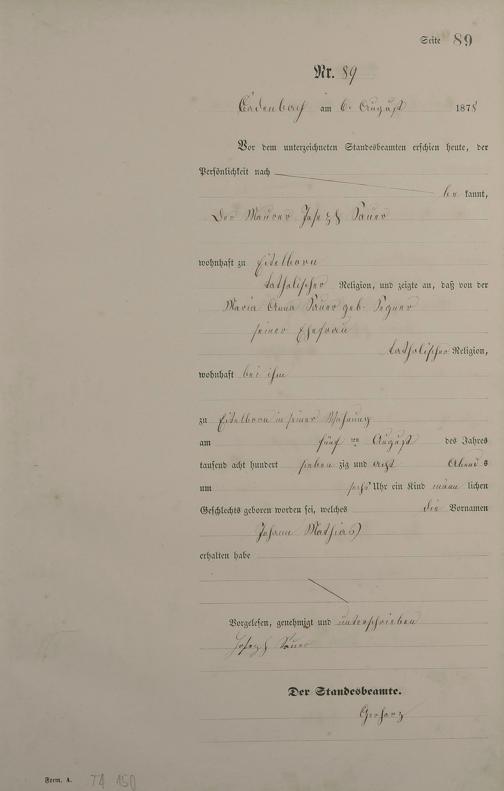 Seite 89
Nr. 89
Cadenbach am 6. August 1878
Vor dem unterzeichneten Standesbeamten erschien heute, der
Persönlichkeit nach
be kannt,
der Maurer Joseph Sauer
wohnhaft zu Eitelborn
katholischer Religion, und zeigte an, daß von der
Maria Anna Sauer geb.
seiner Ehefrau
katholischer Religion,
wohnhaft bei ihm
zu Eitelborn in seiner Wohnung
am fünf ten August des Jahres
tausend acht hundert sieben zig und acht Abend s
um sechs Uhr ein Kind männ lichen
Geschlechts geboren worden sei, welches die Vornamen
Johann Mathias
erhalten habe
Vorgelesen, genehmigt und unterschrieben
Joseph Sauer
Der Standesbeamte.
Form. A. 74 150